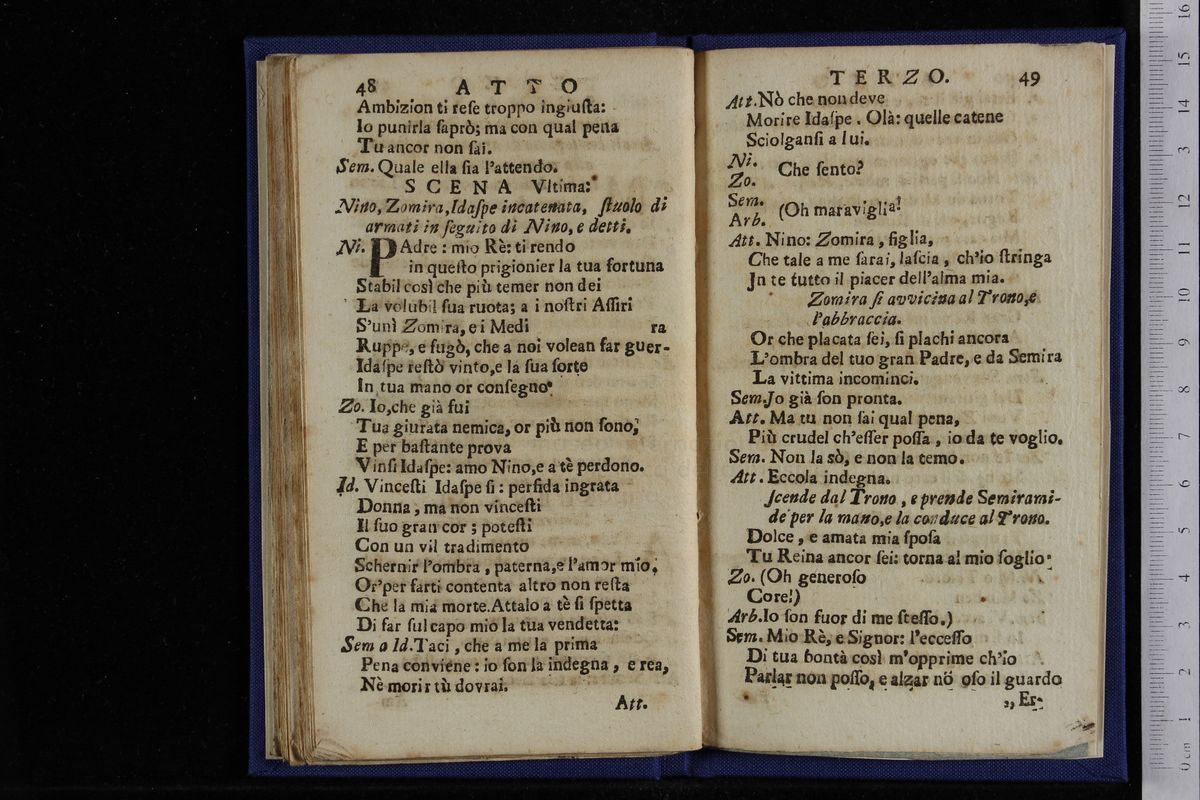 48 ATTO
Ambizion ti reſe troppo ingiuſta:
Io punirla ſaprò; ma con qual pena
Tu ancor non ſai.
Sem. Quale ella ſia l'attendo.
SCENA Vltima.
Nino, Zomira, Idaſpe incatenata, ſtuolo di
armati in ſeguito di Nino, e detti.
Ni. PAdre : mio Rè: ti rendo
in queſto prigionier la tua fortuna
Stabil così che più temer non dei
La volubil ſua ruota; a i noſtri Aſſiri
S'unì Zomira, e i Medi ra
Ruppe, e fugò, che a noi volean far guer-
Idaſpe reſtò vinto, e la ſua ſorte
In tua mano or conſegno.
Zo. Io, che già fui
Tua giurata nemica, or più non ſono;
E per baſtante prova
Vinſi Idaſpe: amo Nino, e a tè perdono.
Id. Vinceſti Idaſpe ſi : perfida ingrata
Donna, ma non vinceſti
Il ſuo gran cor ; poteſti
Con un vil tradimento
Schernir l'ombra, paterna, e l'amor mio.
Or'per farti contenta altro non reſta
Che la mia morte. Attalo a tè ſi ſpetta
Di far ſul capo mio la tua vendetta:
Sem a Id. Taci, che a me la prima
Pena conviene: io ſon la indegna, e rea,
Nè morir tù dovrai.
Att.
TERZO. 49
Att. Nò che non deve
Morire Idaſpe. Olà: quelle catene
Sciolganſi a lui.
Ni.
Zo. Che ſento?
Sem.
Arb. (Oh maraviglia!
Att. Nino: Zomira, figlia,
Che tale a me ſarai, laſcia, ch'io ſtringa
In te tutto il piacer dell'alma mia.
Zomira ſi avvicina al Trono, e
l'abbraccia.
Or che placata ſei, ſi plachi ancora
L'ombra del tuo gran Padre, e da Semira
La vittima incominci.
Sem. Jo già ſon pronta.
Att. Ma tu non ſai qual pena,
Più crudel ch'eſſer poſſa, io da te voglio.
Sem. Non la sò, e non la temo.
Att. Eccola indegna.
Scende dal Trono, e prende Semirami-
de per la mano, e la conduce al Trono.
Dolce, e amata mia ſpoſa
Tu Reina ancor ſei: torna al mio ſoglio.
Zo. (Oh generoſo
Core!)
Arb. Io ſon fuor di me ſteſſo.)
Sem. Mio Rè, e Signor: l'ecceſſo
Di tua bontà così m'opprime ch'io
Parlar non poſſo, e alzar nõ oſo il guardo
,, Er-
0 cm 1 2 3 4 5 6 7 8 9 10 11 12 13 14 15 16